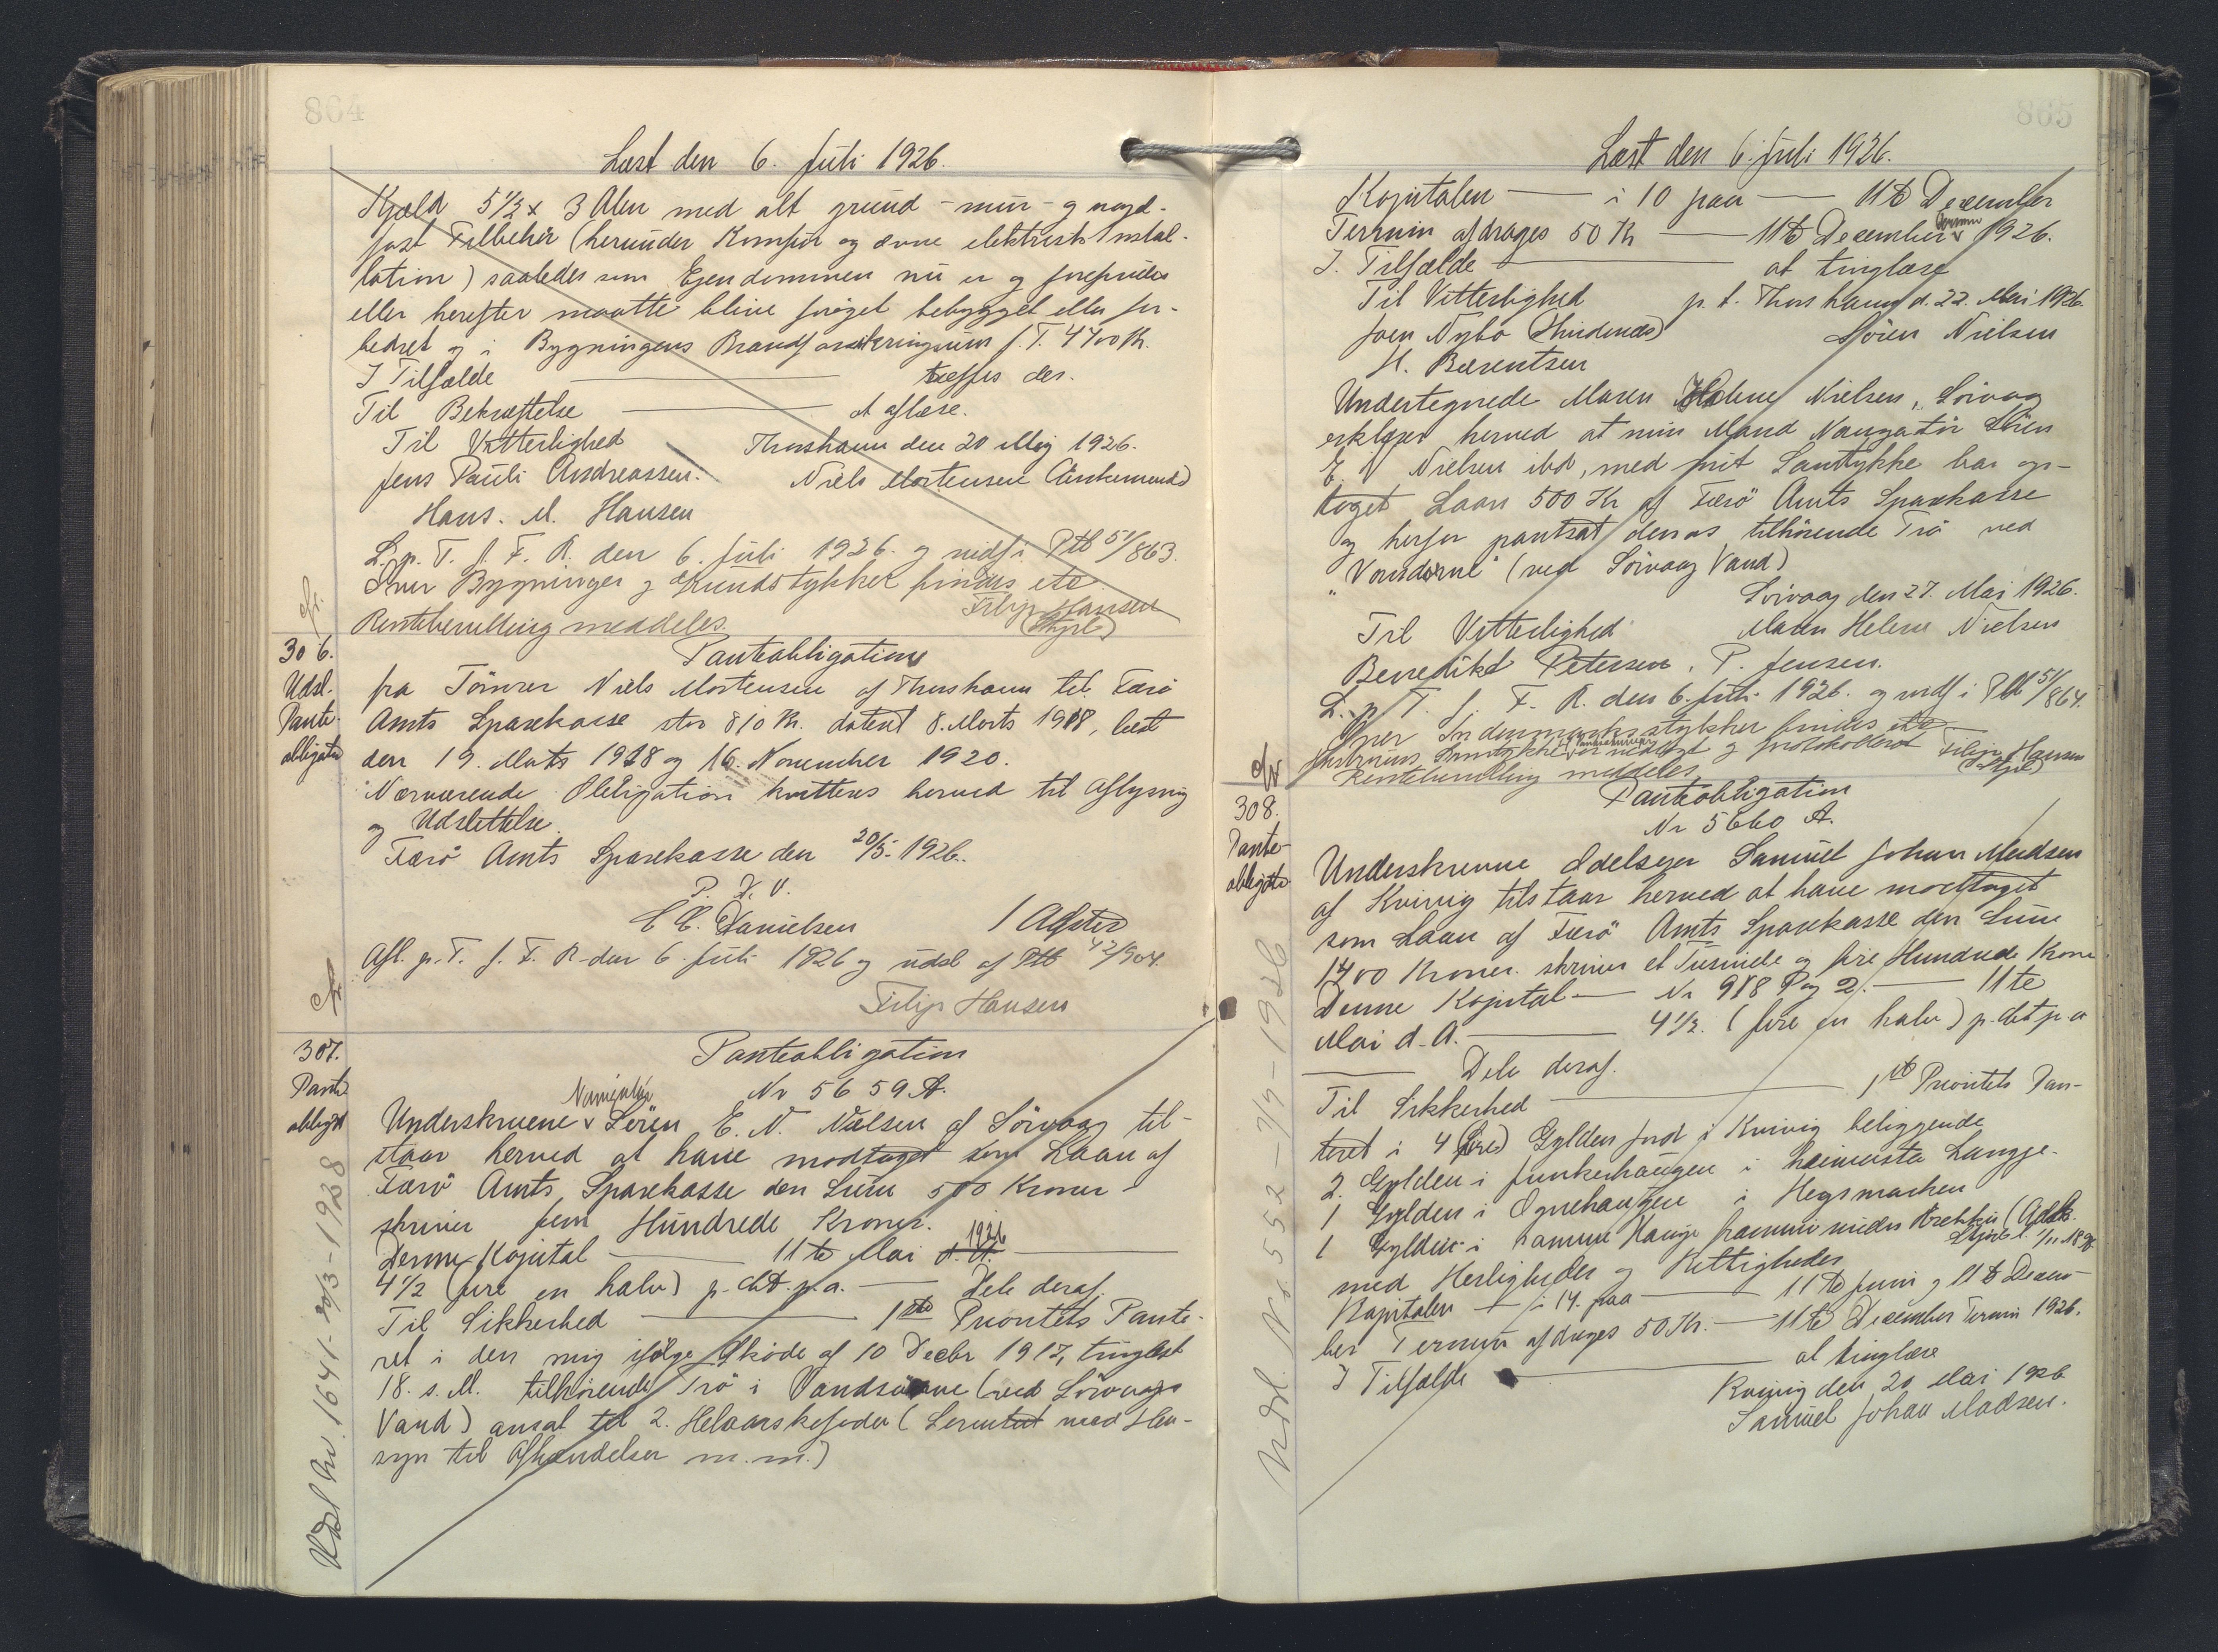 864
Læst den 6. Juli 1926.
Kjæld 5 1/2 x 3 Alen med alt grund - mur - og nagel-
fast Tilbehør (herunder Komfur og ovne elektrisk Instal-
lation) saaledes som Ejendommen nu er og forefindes
eller herefter maatte blive forøget bebygget eller for-
bedret og i Bygningens Brandforsikringssum f. T. 4400 Kr.
I Tilfælde — træffes der.
Til Bekræftelse — at aflæse.
Til Vitterlighed Thorshavn den 20 Maj 1926.
Jens Pauli Andreassen. Niels Mortensen
Hans. M. Hansen
L. p. T. f. F. R. den 6. Juli 1926. og indf i Ptb 51/863.
Over Bygninger og Grundstykker findes etc
Filip Hansen
Rentebevilling meddeles.
(Stpl)
306.
Udsl.
Pante-
obligation
Panteobligation
fra Tømrer Niels Mortensen af Thorshavn til Færø
Amts Sparekasse stor 810 Kr. dateret 8. Marts 1918, læst
den 19. Marts 1918 og 16. November 1920.
Nærværende Obligation kvitteres herved til Aflysning
og Udslettelse.
Færø Amts Sparekasse den 20/5 1926.
P. K. V.
C C. Danielsen
Afl. p. T. f. F. R. den 6. Juli 1926 og udsl af Ptb 42/904.
Filip Hansen
307.
Pante
obligat
Panteobligation
Nr 5659 A.
Underskrevne Navigatør Sören E. N. Nielsen af Sörvaag til-
staar herved at have modtaget som Laan af
Færö Amts Sparekasse den Sum 500 Kroner
skriver fem Hundrede Kroner.
Denne Kapital — 11te Mai d. A. 1926 —
4 1/2 (fire en halv) p. ct. p. a. — Dele deraf.
Til Sikkerhed — 1ste Prioritets Pante-
ret i den mig ifølge Skøde af 10 Decbr 1917, tinglæst
18. s. M. tilhørende Trö i Vandsörne (ved Sörvaags
Vand) ansat til 2. Helaarskofoder ( med Hen-
syn til Afhændelser m.m.)
Udsl Nr. 1641 - 20/3 - 1938
865
Læst den 6. Juli 1926.
Kapitalen — i 10 paa — 11te December
Termin afdrages 50 Kr — 11te December Termin 1926.
I Tilfælde — at tinglæse
Til Vitterlighed p. t. Thorshavn d. 22. Mai 1926
Joen Nybo Sören Nielsen
H. Bærentsen
Undertegnede Maren Helene Nielsen, Sörvaag
erklærer herved at min Mand Navigatör Sören
E. N Nielsen ibd, med mit Samtykke har op-
taget Laan 500 Kr af Færö Amts Sparekasse
og herfor pantsat den os tilhörende Trö ved
"Vandsörne" (ved Sörvaag Vand)
Sörvaag den 27. Mai 1926.
Til Vitterlighed Maren Helene Nielsen
Benedikt Petersen. P. Jensen.
L. p. T. f. F. R. den 6. Juli 1926. og indf i Ptb 51/864.
Over Indenmarksstykker findes etc
Hustruens Samtykke til Pantsætningen er vedlagt og protokolleret Filip Hansen
Rentebevilling meddeles.
(Stpl)
308.
Pante-
obligatio
Panteobligation
Nr 5660 A.
Underskrevne Odelsejer Samuel Johan Madsen
af Kvivig tilstaar herved at have modtaget
som Laan af Færö Amts Sparekasse den Sum
1400 Kroner. skriver et Tusinde og fire Hundrede Krone
Denne Kapital — Nr 918 Pag 2. — 11te
Mai d. A. — 4 1/2. (fire en halv) p. ct p a
— Dele deraf.
Til Sikkerhed — 1ste Prioritets Pan-
teret i 4 (fire) Gylden Jord i Kvivig beliggende
2. Gylden i Junkerhaugen i heimasta
1 Gylden i Ognehaugen i Hegsmarken
1 Gylden i samme Hauge
med Herligheder og Rettigheder
Kapitalen — i 14. paa — 11te Juni og 11te Decem-
ber Termin afdrages 50 Kr. — 11te December Termin 1926.
I Tilfælde — at tinglæse
Kvivig den 20 Mai 1926
Samuel Johan Madsen.
Udsl. Nr. 552 - 7/9 - 1926